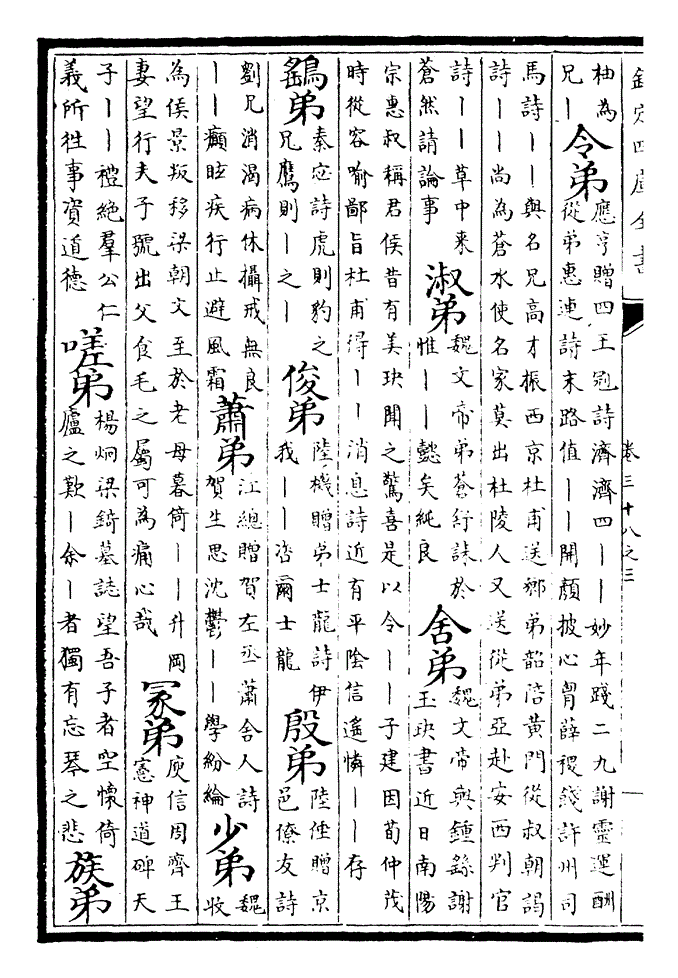 欽定四庫全書
卷三十八之三
柚為
兄丨
令弟
應亨贈四王冠詩濟濟四丨丨妙年踐二九謝靈運酬
從弟惠連詩末路值丨丨開顏披心胷薛稷餞許州司
馬詩丨丨與名兄高才振西京杜甫送鄉弟韶陪黄門從叔朝謁
詩丨丨尚為蒼水使名家莫出杜陵人又送從弟亞赴安西判官
詩丨丨草中來
蒼然請論事
淑弟
魏文帝弟蒼舒誄於
惟丨丨懿矣純良
舍弟
魏文帝與鍾繇謝
玉玦書近日南陽
宗惠叔稱君侯昔有美玦聞之驚喜是以令丨丨子建因荀仲茂
時從容喻鄙旨杜甫得丨丨消息詩近有平陰信遙憐丨丨存
鷂弟
秦宓詩虎則豹之
兄鷹則丨之丨
俊弟
陸機贈弟士龍詩伊
我丨丨咨爾士龍
殷弟
陸倕贈京
邑僚友詩
劉兄消渴病休攝戒無良
丨丨癲眩疾行止避風霜
蕭弟
江總贈賀左丞蕭舍人詩
賀生思沈鬱丨丨學紛綸
少弟
魏
收
為侯景叛移梁朝文至於老母暮倚丨丨升岡
妻望行夫子號出父食毛之屬可為痛心哉
冢弟
庾信周齊王
憲神道碑天
子丨丨禮絶羣公仁
義所往事資道德
嗟弟
楊炯梁錡墓誌望吾子者空懷倚
廬之歎丨余丨者獨有忘琴之悲
族弟